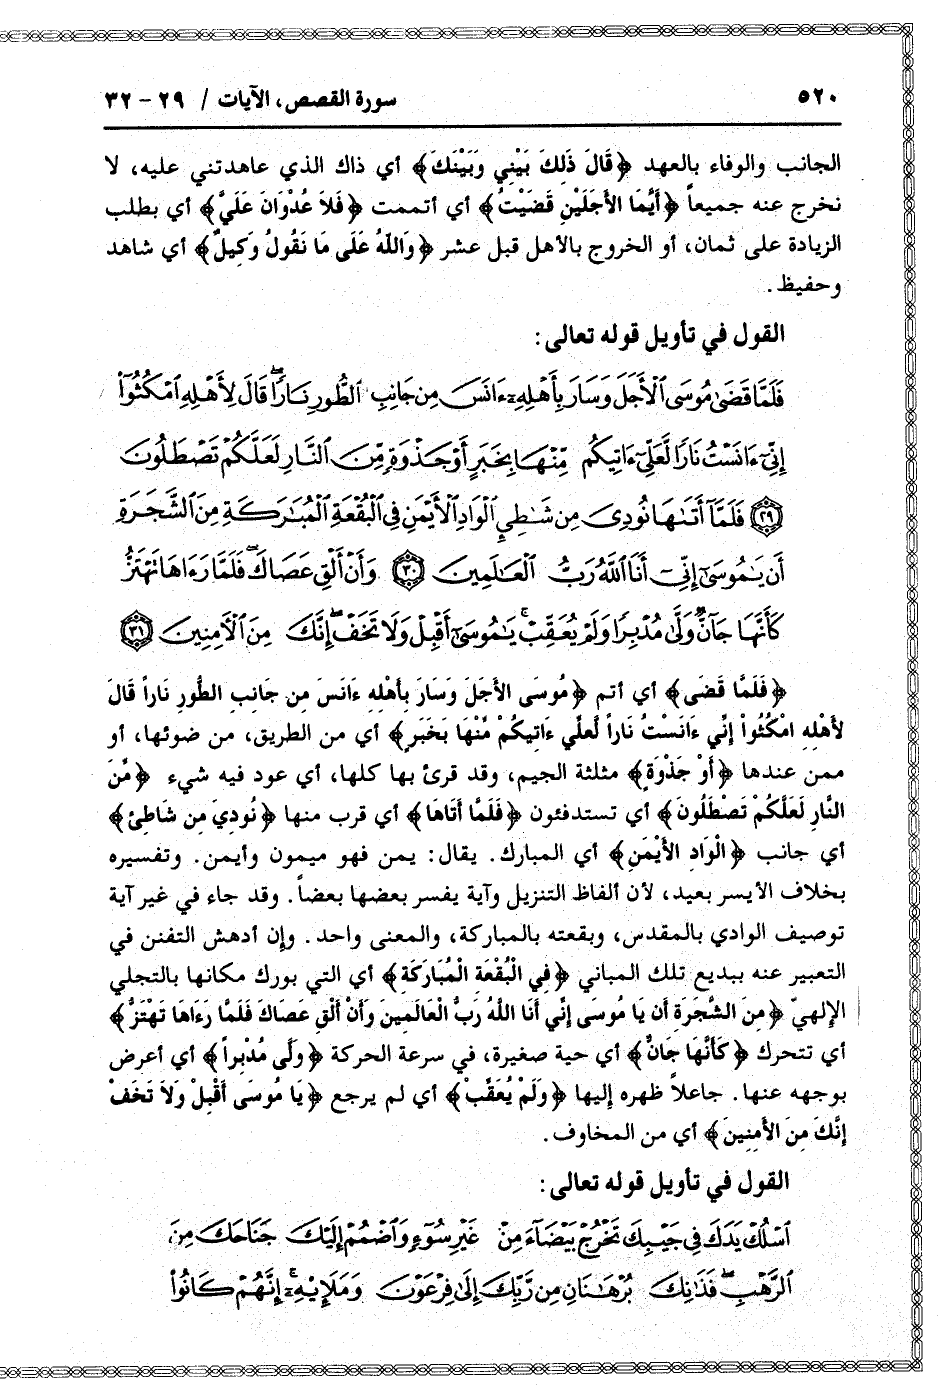 ٥٢٠ سورة القصص، الآيات / ٢٩ - ٣٢
الجانب والوفاء بالعهد ﴿قَالَ ذَلِكَ بَيْنِي وَبَيْنَكَ﴾ أي ذاك الذي عاهدتني عليه، لا
نخرج عنه جميعاً ﴿أَيَّمَا الأَجَلَيْنِ قَضَيْتُ﴾ أي أتممت ﴿فَلاَ عُدْوَانَ عَلَيَّ﴾ أي بطلب
الزيادة على ثمان، أو الخروج بالأهل قبل عشر ﴿وَاللَّهُ عَلَى مَا نَقُولُ وَكِيلٌ﴾ أي شاهد
وحفيظ.
القول في تأويل قوله تعالى:
فَلَمَّا قَضَىٰ مُوسَى ٱلْأَجَلَ وَسَارَ بِأَهْلِهِۦٓ ءَانَسَ مِن جَانِبِ ٱلطُّورِ نَارًاۖ قَالَ لِأَهْلِهِ ٱمْكُثُوٓاْ
إِنِّيٓ ءَانَسْتُ نَارًا لَّعَلِّيٓ ءَاتِيكُم مِّنْهَا بِخَبَرٍ أَوْ جَذْوَةٍ مِّنَ ٱلنَّارِ لَعَلَّكُمْ تَصْطَلُونَ
﴿٢٩﴾ فَلَمَّآ أَتَىٰهَا نُودِيَ مِن شَٰطِيِٕ ٱلْوَادِ ٱلْأَيْمَنِ فِي ٱلْبُقْعَةِ ٱلْمُبَٰرَكَةِ مِنَ ٱلشَّجَرَةِ
أَن يَٰمُوسَىٰٓ إِنِّيٓ أَنَا ٱللَّهُ رَبُّ ٱلْعَٰلَمِينَ ﴿٣٠﴾ وَأَنْ أَلْقِ عَصَاكَۖ فَلَمَّا رَءَاهَا تَهْتَزُّ
كَأَنَّهَا جَآنٌّ وَلَّىٰ مُدْبِرًا وَلَمْ يُعَقِّبْۚ يَٰمُوسَىٰٓ أَقْبِلْ وَلَا تَخَفْۖ إِنَّكَ مِنَ ٱلْأَمِنِينَ ﴿٣١﴾
﴿فَلَمَّا قَضَى﴾ أي أتم ﴿مُوسَى الأَجَلَ وَسَارَ بِأَهْلِهِ ءَانَسَ مِن جَانِبِ الطُّورِ نَاراً قَالَ
لأَهْلِهِ امْكُثُواْ إِنِّي ءَانَسْتُ نَاراً لَعلِّي ءَاتِيكُمْ مِّنْهَا بِخَبَرٍ﴾ أي من الطريق، من ضوئها، أو
ممن عندها ﴿أَوْ جَذْوَةٍ﴾ مثلثة الجيم، وقد قرئ بها كلها، أي عود فيه شيء ﴿مِّنَ
النَّارِ لَعَلَّكُمْ تَصْطَلُونَ﴾ أي تستدفئون ﴿فَلَمَّا أَتَاهَا﴾ أي قرب منها ﴿نُودِيَ مِن شَاطِئ﴾
أي جانب ﴿الْوَادِ الأَيْمَنِ﴾ أي المبارك. يقال: يمن فهو ميمون وأيمن. وتفسيره
بخلاف الأيسر بعيد، لأن ألفاظ التنزيل وآية يفسر بعضها بعضاً. وقد جاء في غير آية
توصيف الوادي بالمقدس، وبقعته بالمباركة، والمعنى واحد. وإن أدهش التفنن في
التعبير عنه ببديع تلك المباني ﴿فِي الْبُقْعَةِ الْمُبَارَكَةِ﴾ أي التي بورك مكانها بالتجلي
الإلهيّ ﴿مِنَ الشَّجَرَةِ أَن يَا مُوسَى إِنِّي أَنَا اللَّهُ رَبُّ الْعَالَمِينَ وَأَنْ أَلْقِ عَصَاكَ فَلَمَّا رَءَاهَا تَهْتَزُّ﴾
أي تتحرك ﴿كَأَنَّهَا جَانٌّ﴾ أي حية صغيرة، في سرعة الحركة ﴿وَلَّى مُدْبِراً﴾ أي أعرض
بوجهه عنها. جاعلاً ظهره إليها ﴿وَلَمْ يُعَقِّبْ﴾ أي لم يرجع ﴿يَا مُوسَى أَقْبِلْ وَلاَ تَخَفْ
إِنَّكَ مِنَ الأَمِنِينَ﴾ أي من المخاوف.
القول في تأويل قوله تعالى:
ٱسْلُكْ يَدَكَ فِي جَيْبِكَ تَخْرُجْ بَيْضَآءَ مِنْ غَيْرِ سُوٓءٍ وَٱضْمُمْ إِلَيْكَ جَنَاحَكَ مِنَ
ٱلرَّهْبِۖ فَذَٰنِكَ بُرْهَٰنَانِ مِن رَّبِّكَ إِلَىٰ فِرْعَوْنَ وَمَلَإِيْهِۦٓۚ إِنَّهُمْ كَانُواْ